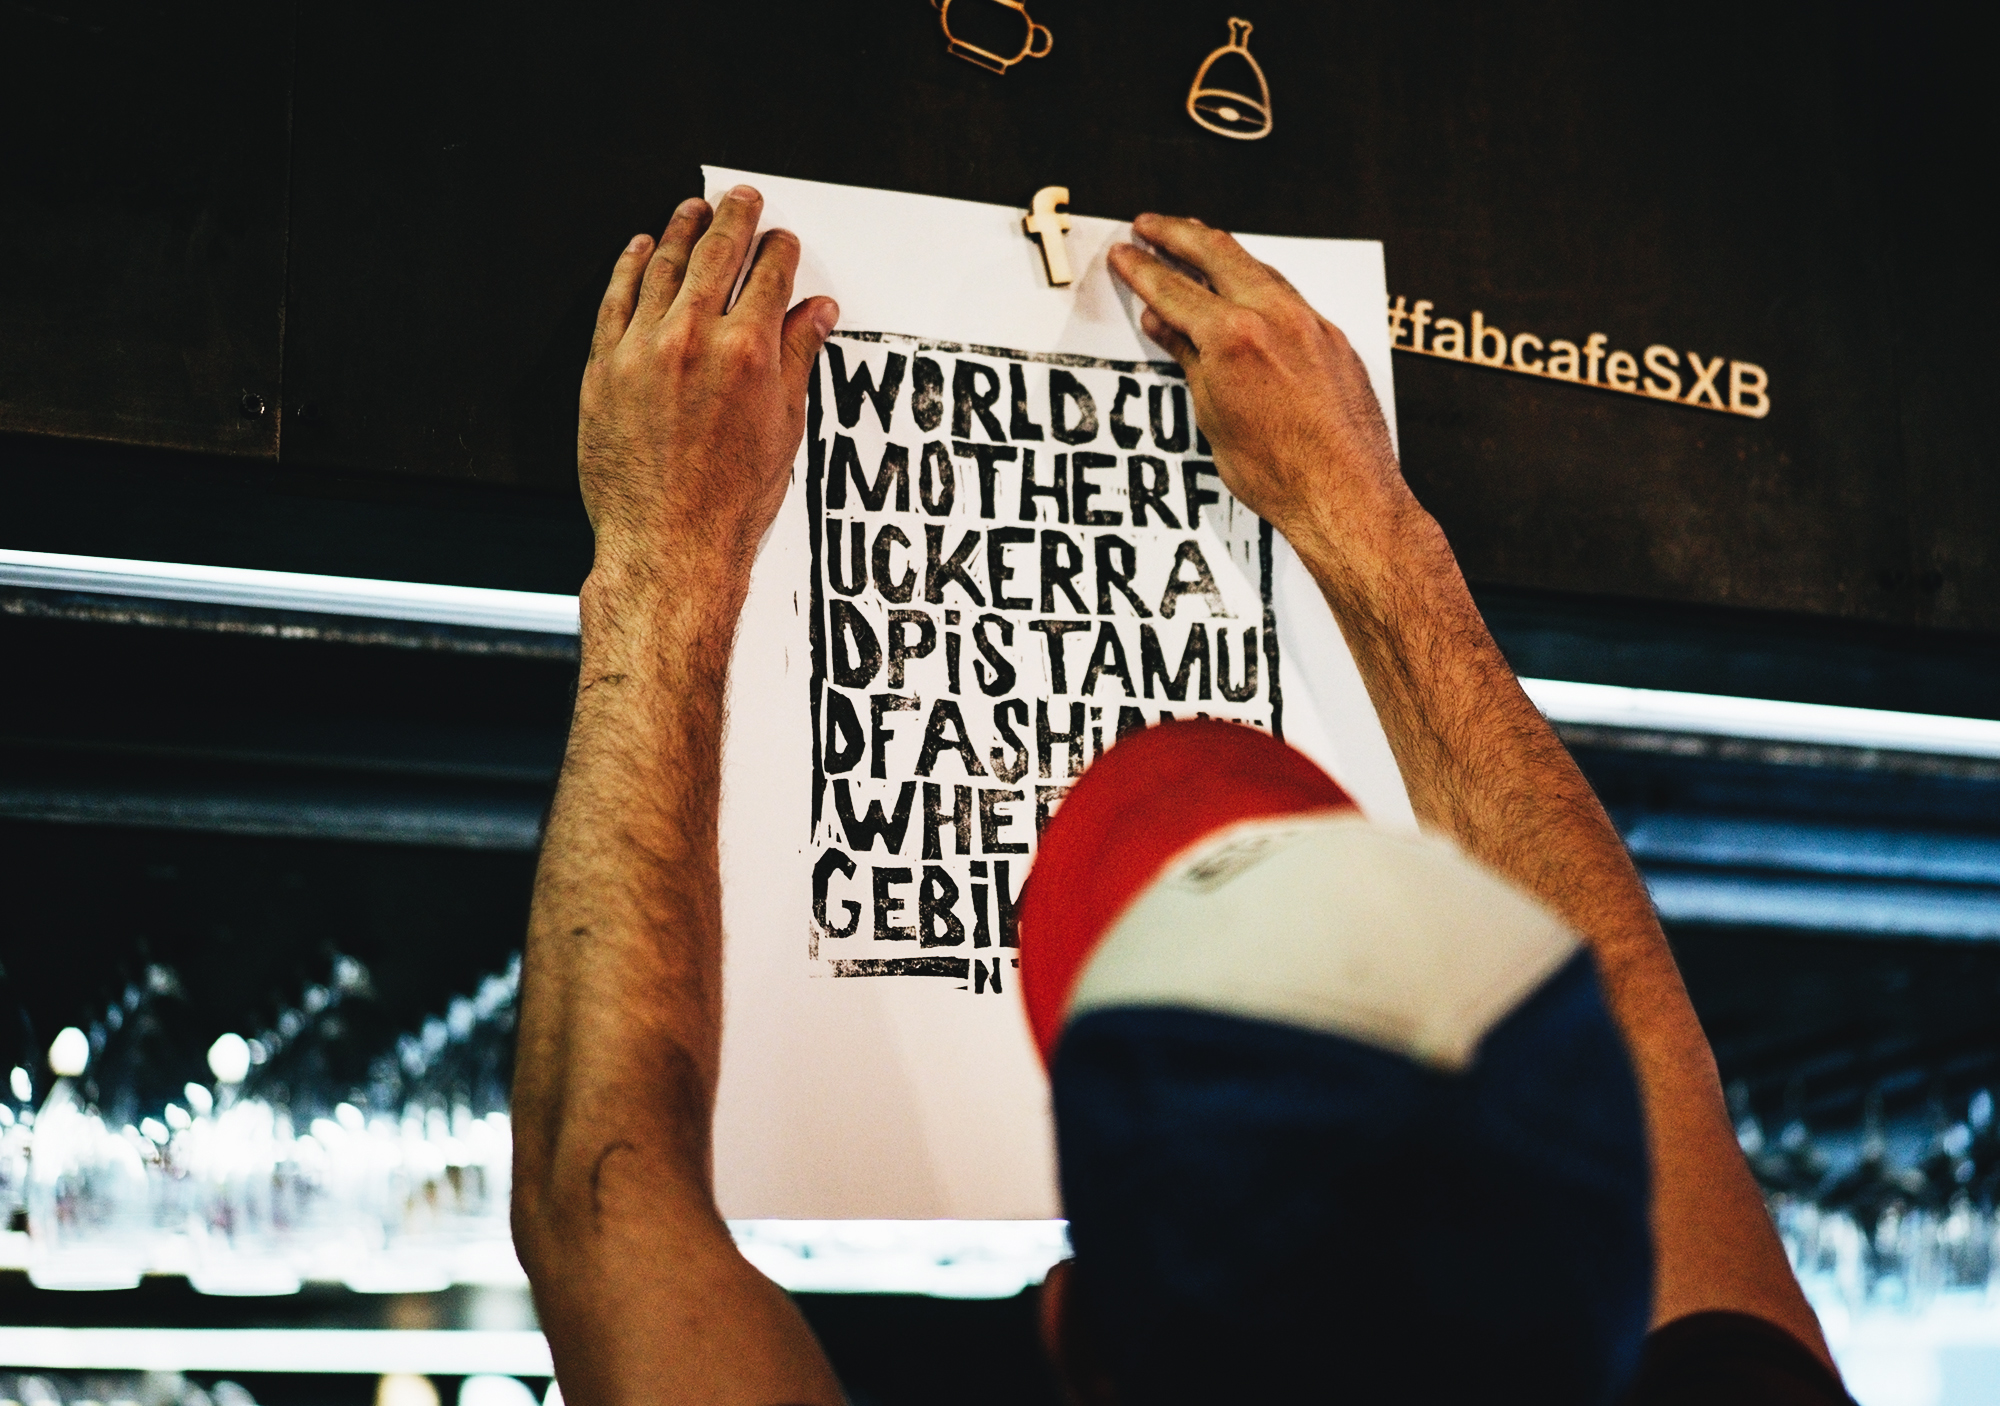 f
#fabcafeSXB
WORLD CU
MOTHERF
UCKERRA
DPiSTAMU
DFASHi
WHEE
GEBi
N